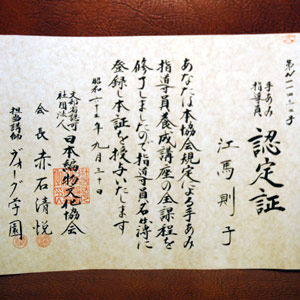 手あみ
指導員
認定証
江馬則子
あなたは本協会規定による手あみ
指導員養成講座の全課程を
修了しましたので指導員名簿に
登録し本証を授与いたします
文部省認可
社団法人
日本編物文化協会
会長 赤石清悦
担当講師 ヴォーグ学園